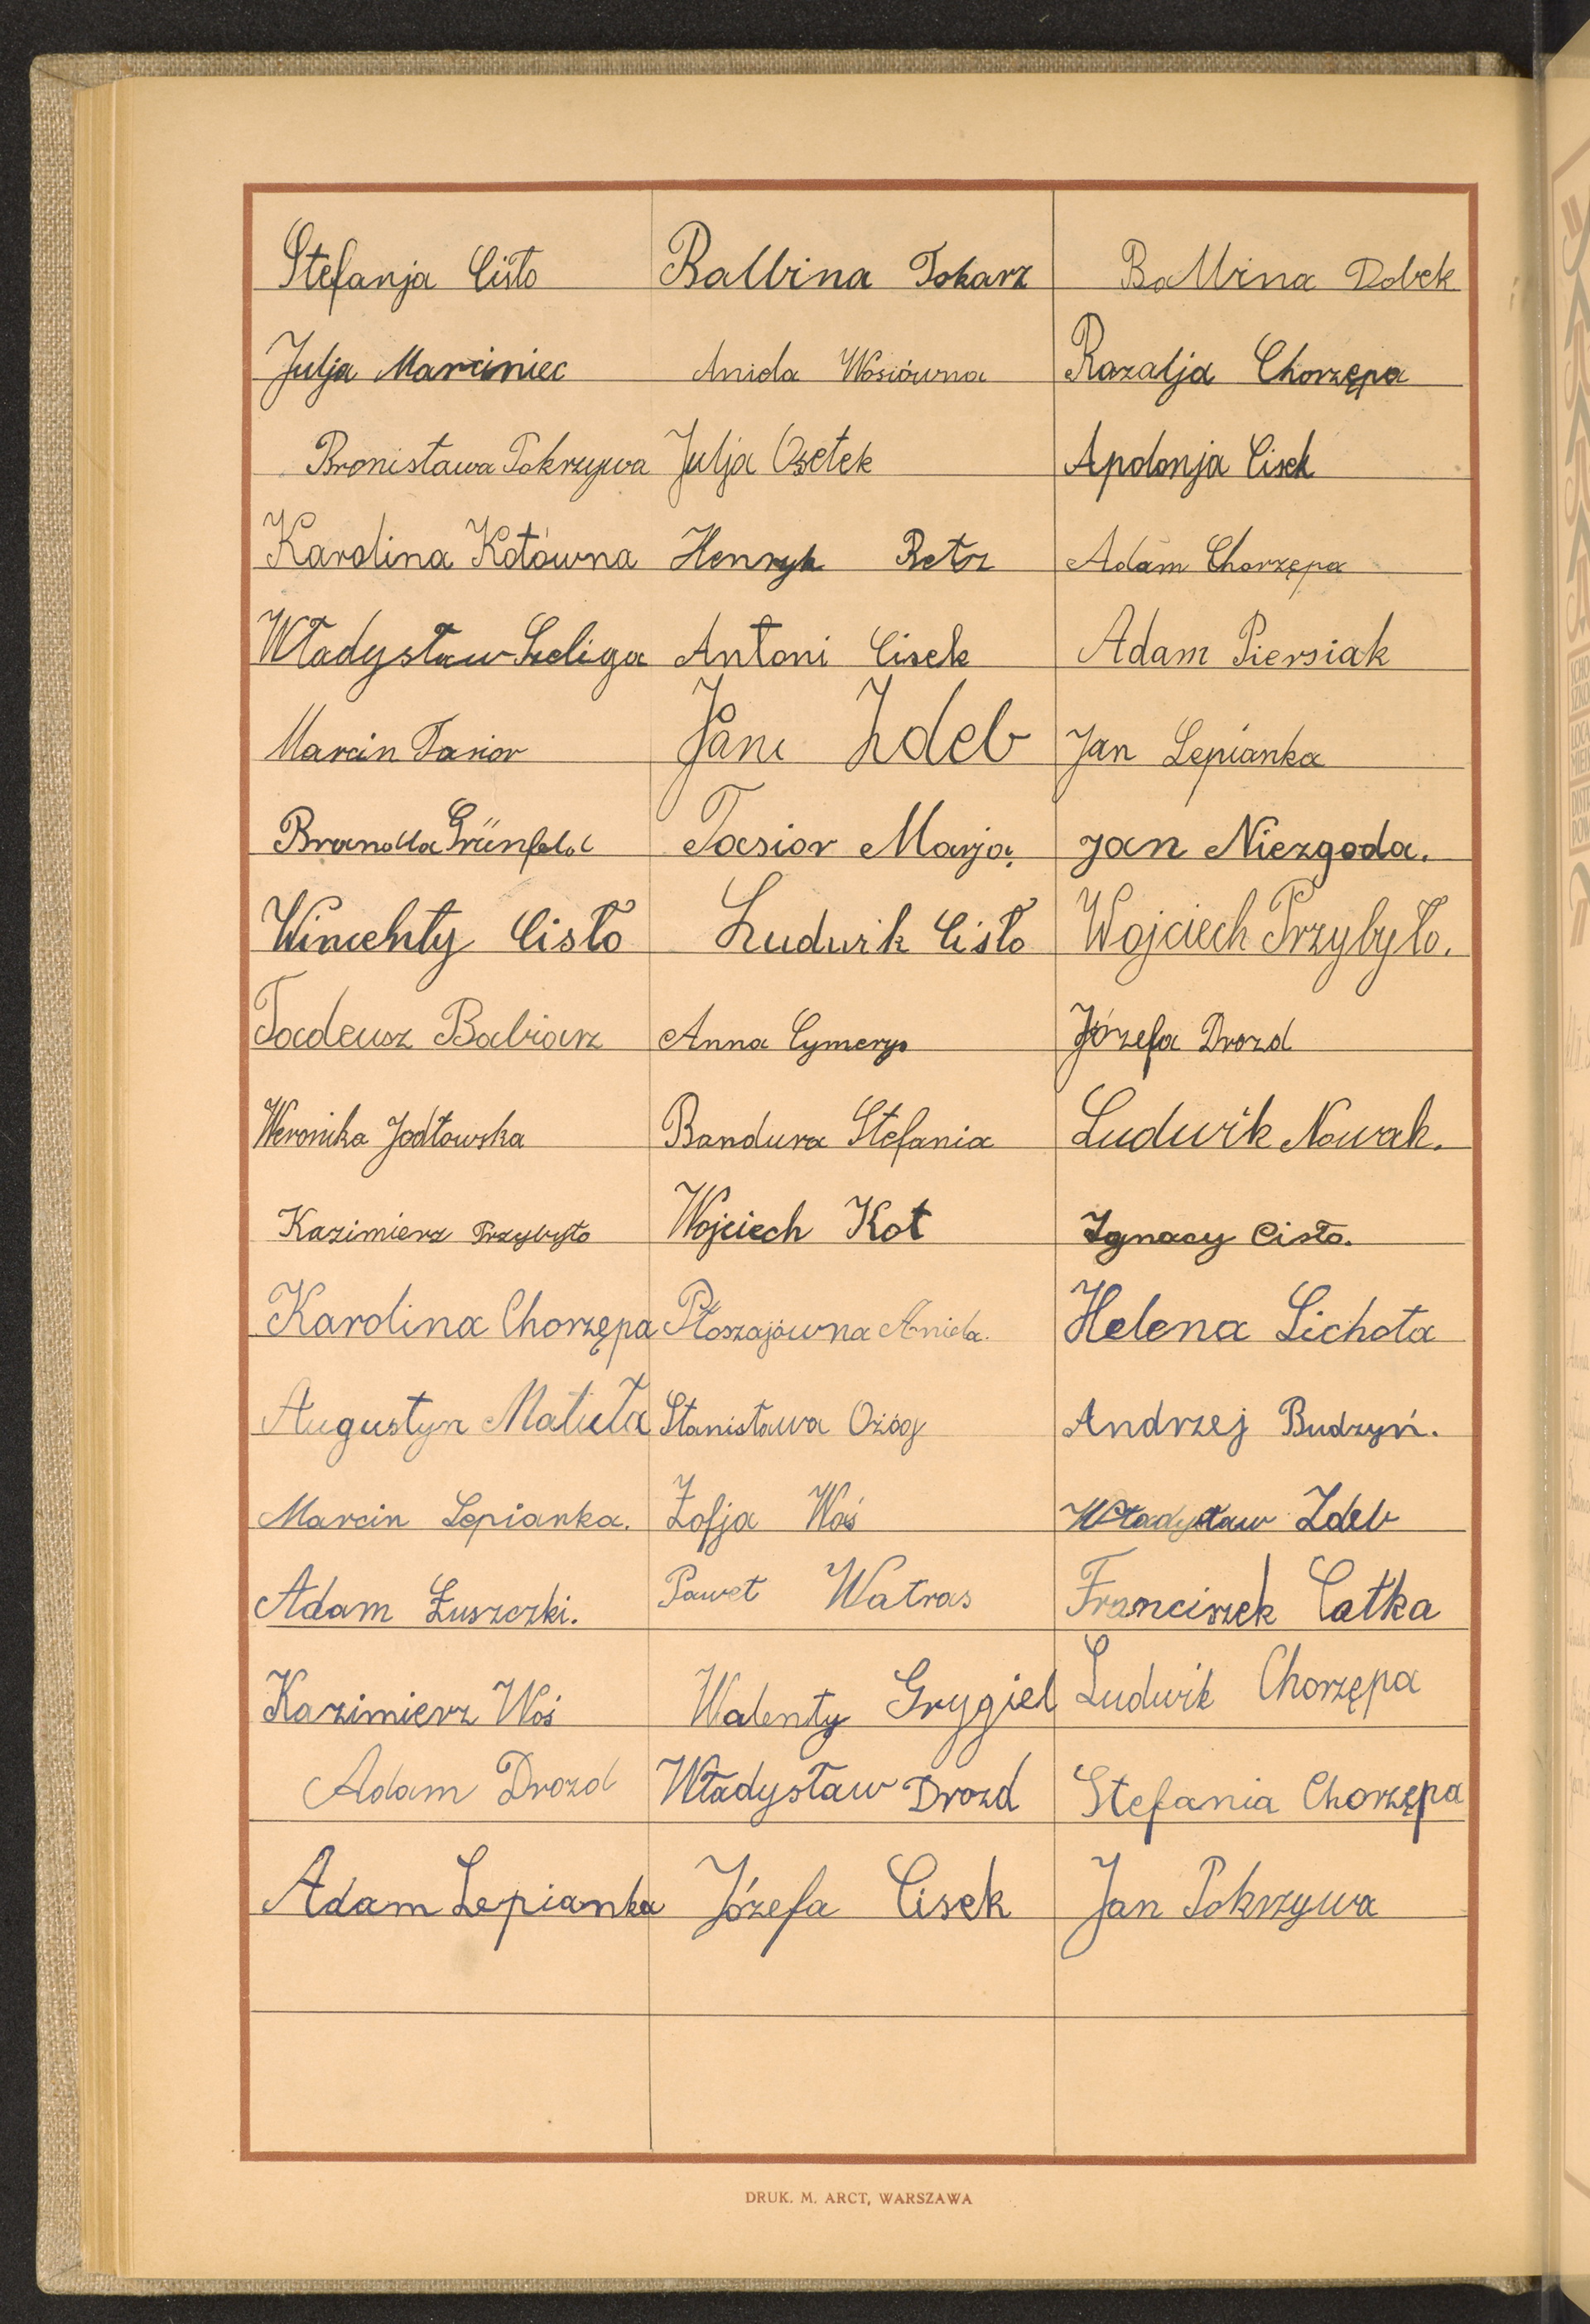 Stefanja Cisło Balbina Tokarz Balbina Dobek
Julja Marciniec Aniela Wosiówna Rozalja Chorzępa
Bronisława Pokrzywa Julja Osetek Apolonja Cisek
Karolina Kotówna Henryk Retz Adam Chorzępa
Władysław Szeliga Antoni Cisek Adam Piersiak
Marcin Tasior Jan Zdeb Jan Lepianka
Grünfeld Tasior Marja. Jan Niezgoda.
Wincenty Cisło Ludwik Cisło Wojciech Przybyło.
Tadeusz Babiarz Anna Cymerys Józefa Drozd
Weronika Jodłowska Bandura Stefania Ludwik Nowak.
Kazimierz Przybyło Wojciech Kot Ignacy Cisło.
Karolina Chorzępa Płoszajówna Aniela. Helena Lichota
Augustyn Matuła Stanisława Ożóg Andrzej Budzyń.
Marcin Lepianka. Zofja Woś Władysław Zdeb
Adam Łuszczki. Paweł Watras Franciszek Całka
Kazimierz Woś Walenty Grygiel Ludwik Chorzępa
Adam Drozd Władysław Drozd Stefania Chorzępa
Adam Lepianka Józefa Cisek Jan Pokrzywa
DRUK. M. ARCT, WARSZAWA